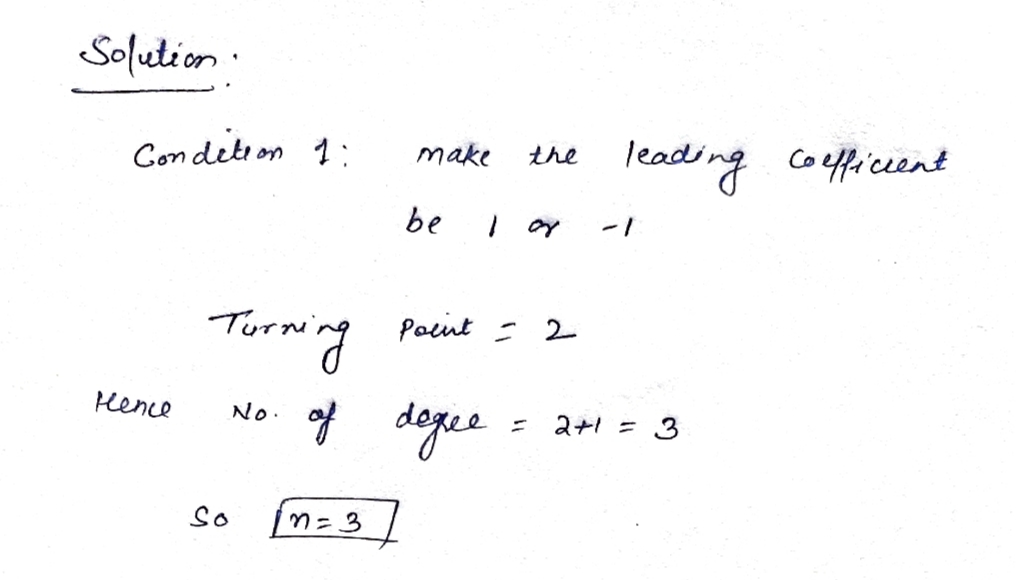 Solution:
Condition 1: make the leading coefficient
be 1 or -1
Turning Point = 2
Hence No. of degree = 2+1 = 3
So n=3